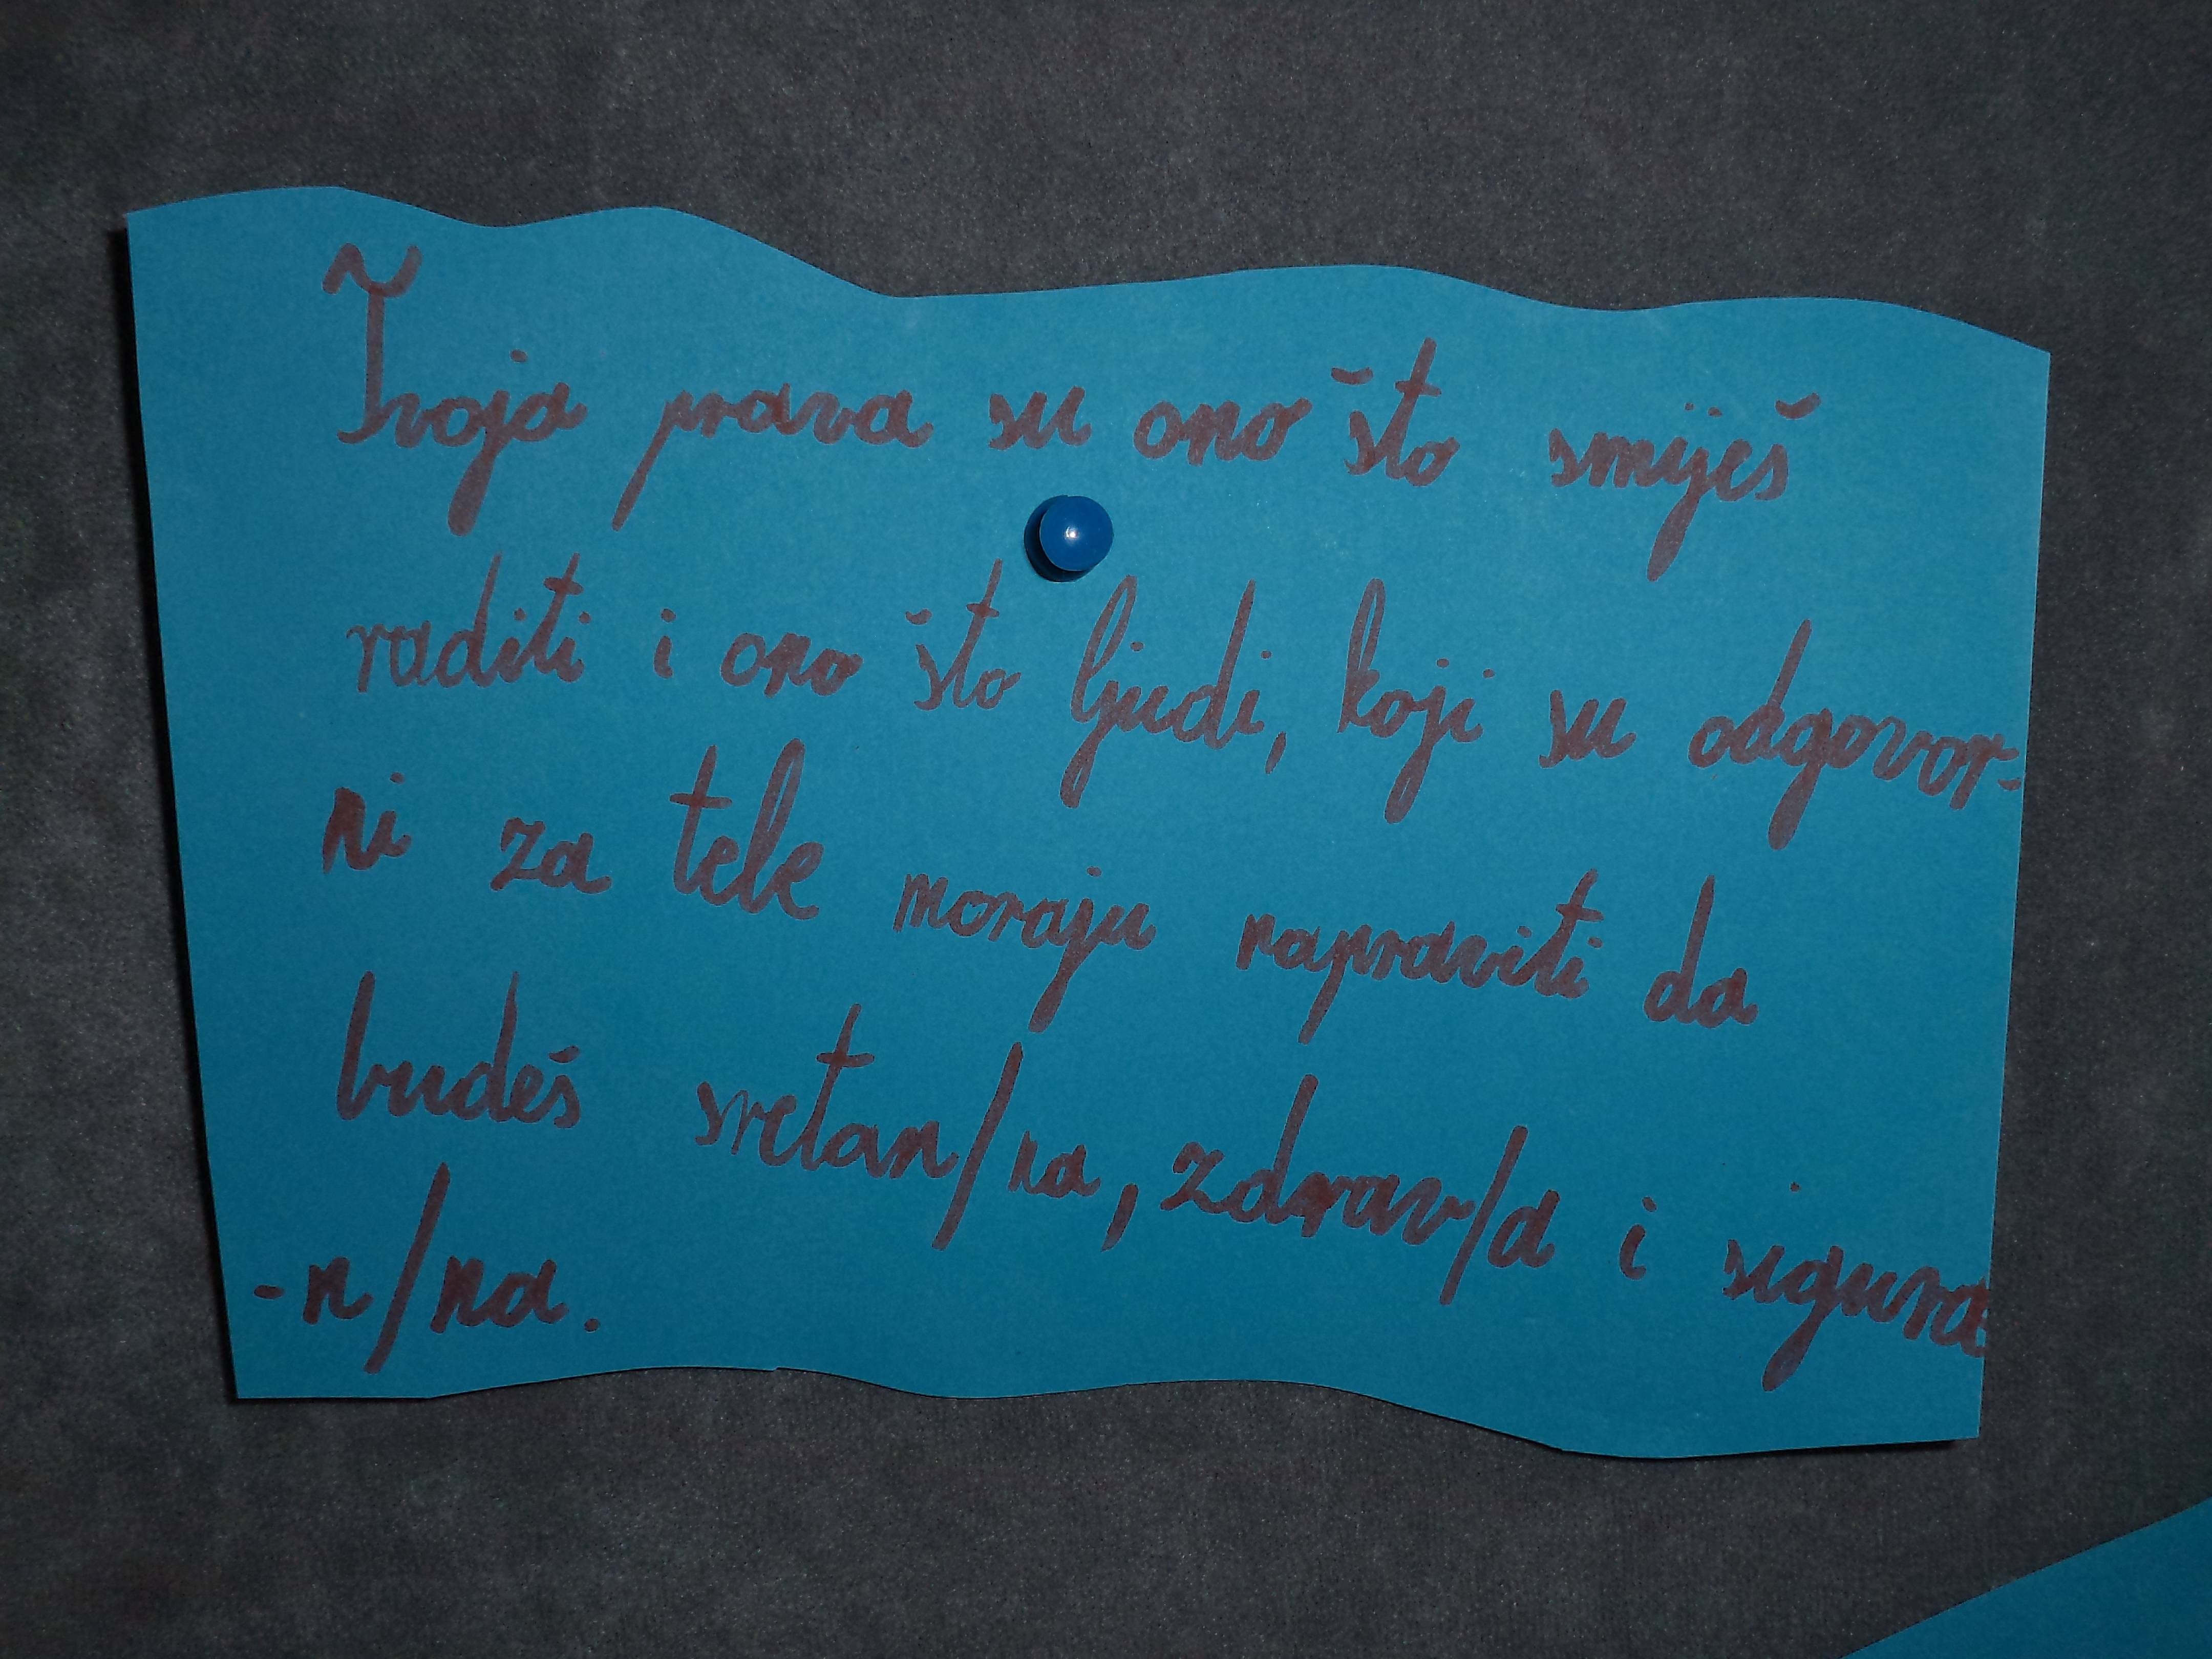 Tvoja prava su ono što smiješ
raditi i ono što ljudi, koji su odgovor-
ni za tebe moraju napraviti da
budeš sretan/na, zdrav/a i sigura
-n/na.